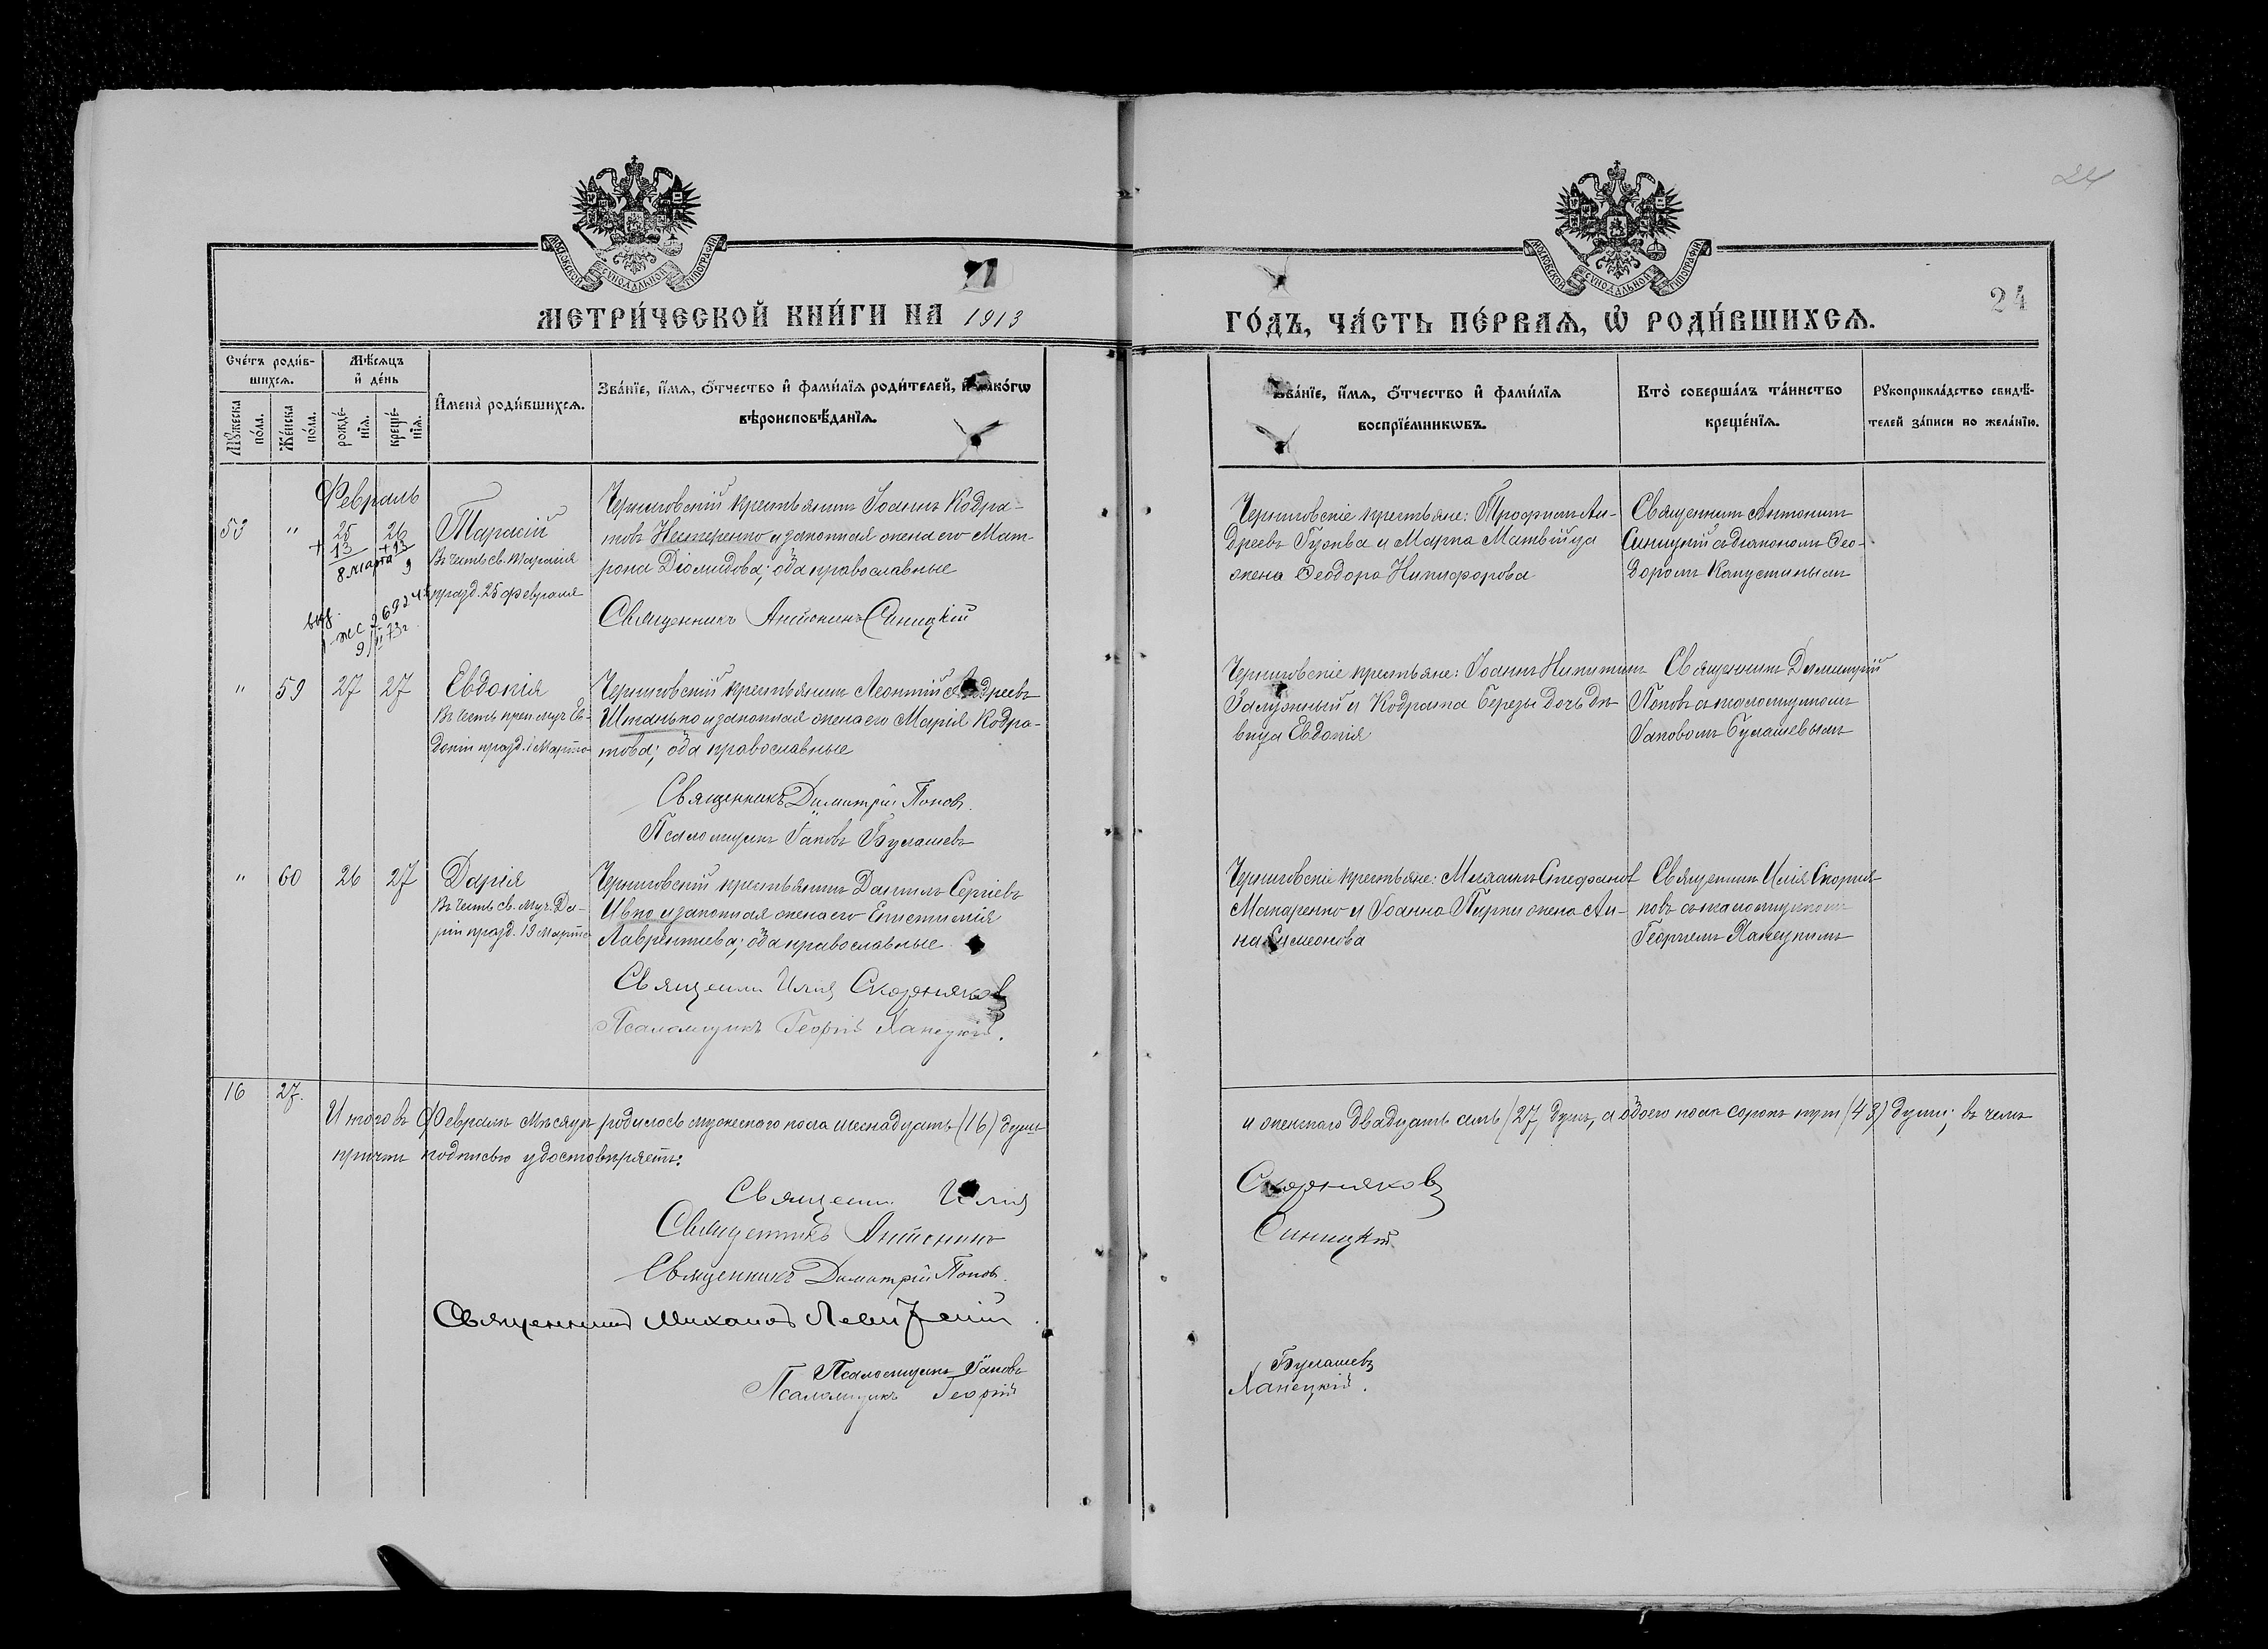 24
МОСКОВСКОЙ СѴНОДАЛЬНОЙ ТИПОГРАФІИ
МОСКОВСКОЙ СѴНОДАЛЬНОЙ ТИПОГРАФІИ
МЕТРИ́ЧЕСКОЙ КНИ́ГИ НА 1913
ГО́ДЪ, ЧА́СТЬ ПЕ́РВАЯ, Ѽ РОДИ́ВШИХСѦ.
24
Сче́тъ роди́в-
шихсѧ.
Мꙋжеска
по́ла.
Же́нска
по́ла.
Мѣ́сѧцъ
и҆ де́нь
рожде́-
нїѧ.
креще́-
нїѧ.
И҆мена̀ роди́вшихсѧ.
Зва́нїе, и҆́мѧ, ѻ҆́тчество и҆ фами́лїѧ роди́телей, и҆ како́гѡ
вѣроисповѣ́данїѧ.
Зва́нїе, и҆́мѧ, ѻ҆́тчество и҆ фами́лїѧ
воспрїе́мникѡвъ.
Кто̀ соверша́лъ та́инство
креще́нїѧ.
Рꙋкоприкла́дство свидѣ́-
телей за́писи по жела́нїю.
Февраль
53 " 25 26
+ 13 +13
8 марта 9
Тарасій
Въ честь св. Тарасія
празд. 25 февраля
9/II 73г.
Черниговскій крестьянинъ Іоаннъ Кодра-
товъ Нестеренко и законная жена его Мат-
рона Діомидова; оба православные
Священникъ Антонинъ Синицкій
Черниговскіе крестьяне: Трофимъ Ан-
дреевъ Гужва и Марка Матвійца
жена Феодора Никифорова
Священникъ Антонинъ
Синицкій съ діакономъ Фео-
доромъ Капустинымъ
" 59 27 27
Евдокія
Въ честь преп. муч. Ев-
докіи празд. 1 Марта
Черниговскій крестьянинъ Леонтій Андреевъ
Штанько и законная жена его Марія Кодра-
това; оба православные
Священникъ Димитрій Попов.
Псаломщикъ Іаковъ Булашевъ
Черниговскіе крестьяне: Іоаннъ Никитинъ
Залужный и Кодрата Березы дочь дѣ-
вица Евдокія
Священникъ Димитрій
Поповъ съ псаломщикомъ
Іаковомъ Булашевымъ
" 60 26 27
Дарія
Въ честь св. муч. Да-
ріи празд. 19 Марта
Черниговскій крестьянинъ Даніилъ Сергіевъ
Ивко и законная жена его Епистимія
Лаврентіева; оба православные
Священник Илія Скорняковъ
Псаломщикъ Георгій Ханецкій.
Черниговскіе крестьяне: Стефанов
Макаренко и Іоанна Пирки жена Ан-
на Симеонова
Священникъ Илія Скорня-
ковъ съ псаломщикомъ
Георгіемъ Ханецкимъ
16 27.
Итого въ Февралѣ мѣсяцѣ родилось мужеского пола шестнадцать (16) душъ
и женскаго двадцать семь (27) душъ, а обоего пола сорокъ три (43) души; въ чемъ
причтъ подписью удостовѣряетъ:
Священник Илія Скорняковъ
Священникъ Антонинъ Синицкій.
Священникъ Димитрій Попов.
Священникъ Михаилъ
Псаломщикъ Іаковъ Булашевъ
Псаломщикъ Георгій Ханецкій.